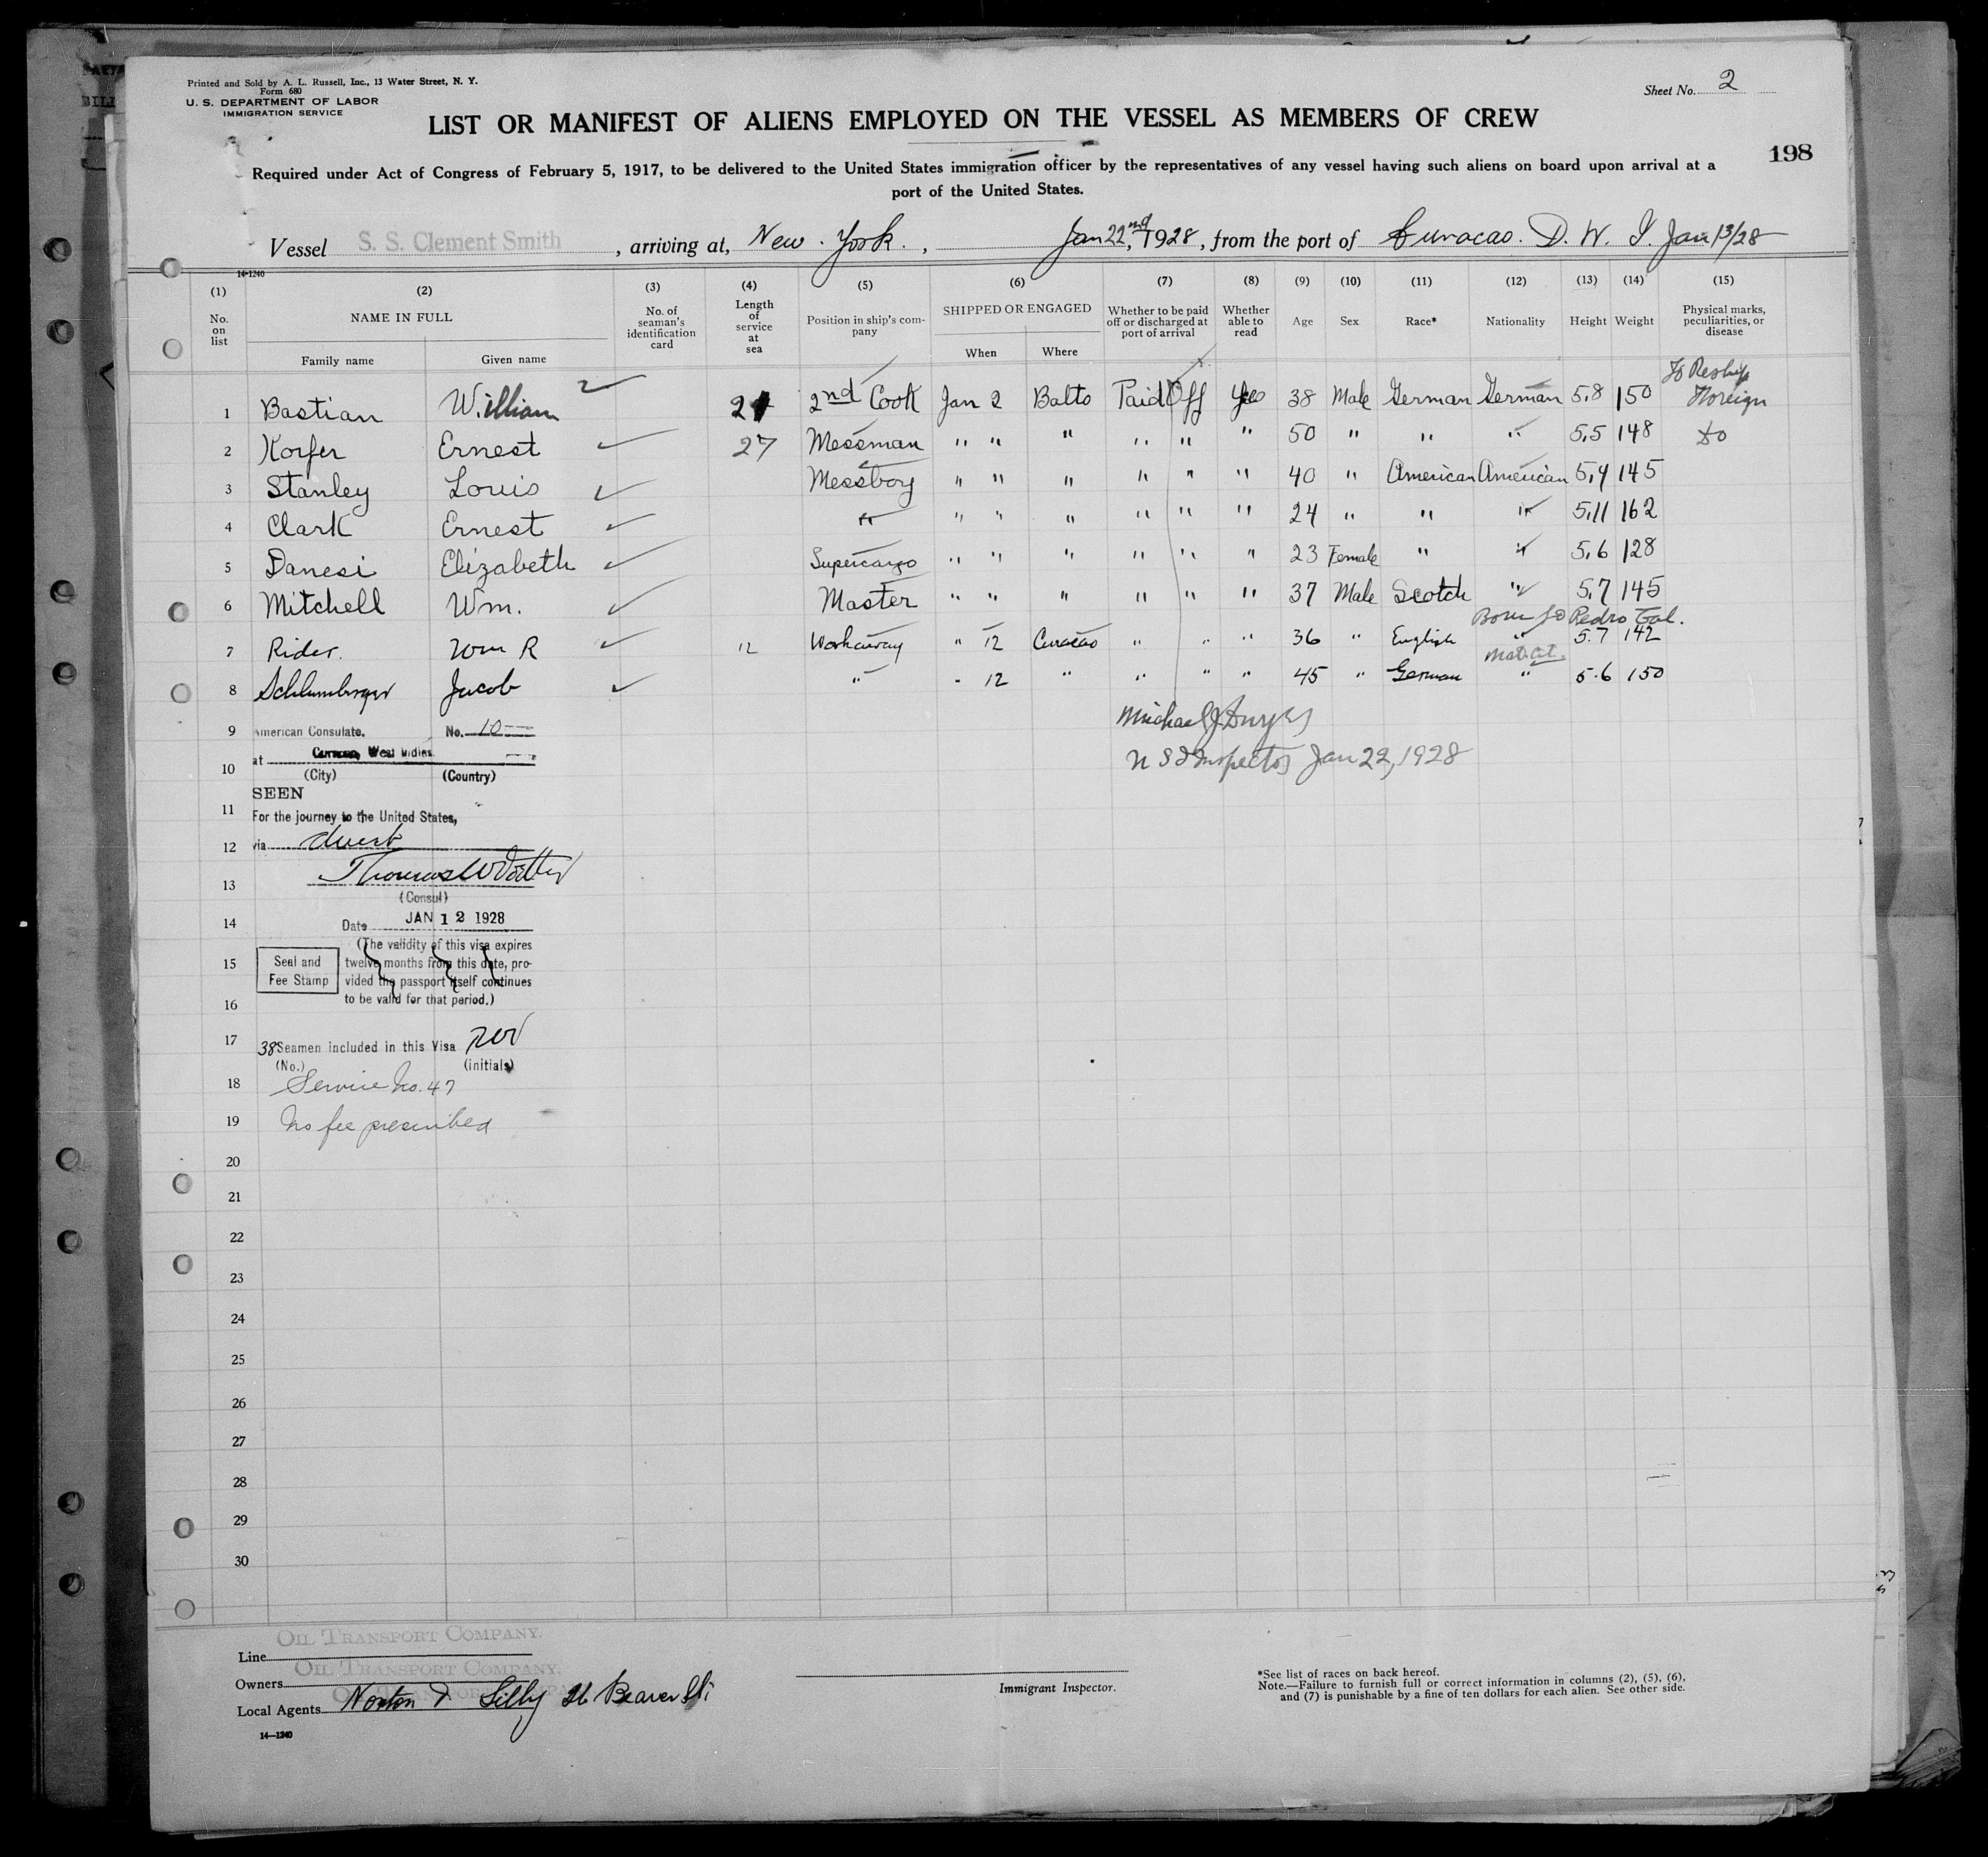 Printed and Sold by A. L. Russell, Inc., 13 Water Street, N. Y.
Form 680
U. S. DEPARTMENT OF LABOR
IMMIGRATION SERVICE
Sheet No. 2
LIST OR MANIFEST OF ALIENS EMPLOYED ON THE VESSEL AS MEMBERS OF CREW
198
Required under Act of Congress of February 5, 1917, to be delivered to the United States immigration officer by the representatives of any vessel having such aliens on board upon arrival at a
port of the United States.
Vessel S. S. Clement Smith, arriving at, New York., Jan 22nd, 1928, from the port of Curacao. D. W. I. Jan 13/28
14-1240
(1) (2) (3) (4) (5) (6) (7) (8) (9) (10) (11) (12) (13) (14) (15)
No. on list
NAME IN FULL
Family name Given name
No. of seaman's identification card
Length of service at sea
Position in ship's company
SHIPPED OR ENGAGED
When Where
Whether to be paid off or discharged at port of arrival
Whether able to read
Age
Sex
Race*
Nationality
Height
Weight
Physical marks, peculiarities, or disease
To Reship
1 Bastian William 2nd Cook Jan 2 Balto Paid Off Yes 38 Male German German 5.8 150 Foreign
2 Korfer Ernest 27 Messman " " " " " " 50 " " " 5.5 148 do
3 Stanley Louis Messboy " " " " " " 40 " American American 5.4 145
4 Clark Ernest " " " " " " " 24 " " " 5.11 162
5 Danesi Elizabeth Supercargo " " " " " " 23 Female " " 5.6 128
6 Mitchell Wm. Master " " " " " " 37 Male Scotch " 5.7 145
Born Pedro Cal.
7 Rider. Wm R 12 Workaway " 12 Curacao " " " 36 " English " 5.7 142
8 Schlumberger Jacob " " 12 " " " " 45 " German " 5.6 150
9 American Consulate. No. 10
Michael J.
10 at Curacao, West Indies
Inspector Jan 22, 1928
(City) (Country)
SEEN
11 For the journey to the United States,
12 via direct
13 Thomas W
(Consul)
14 Date JAN 12 1928
(The validity of this visa expires
15 Seal and Fee Stamp twelve months from this date, provided the passport itself continues
16 to be valid for that period.)
17 38 Seamen included in this Visa
(No.) (initials)
18 Service No. 47
19 No fee prescribed
20
21
22
23
24
25
26
27
28
29
30
Line OIL TRANSPORT COMPANY.
Owners OIL TRANSPORT COMPANY.
Local Agents Norton & Lilly 26 Beaver St.
14—1240
Immigrant Inspector.
*See list of races on back hereof.
Note.—Failure to furnish full or correct information in columns (2), (5), (6),
and (7) is punishable by a fine of ten dollars for each alien. See other side.